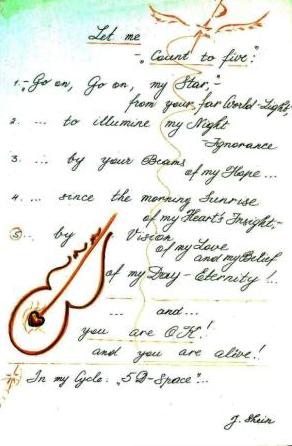 Let me
„Count to five":
1. - Go on, Go on, my Star, -
from your far World-Light,
2. ... to illumine my Night
Ignorance
3. ... by your Beams
of my Hope...
4. ... since the morning Sunrise
of my Heart's Insight, -
5... by Vision
of my Love
and my Belief
of my Day - Eternity!...
... and...
you are O.K.!
and you are alive!!
In my Cycle: „5D-Space"...
J. Shein